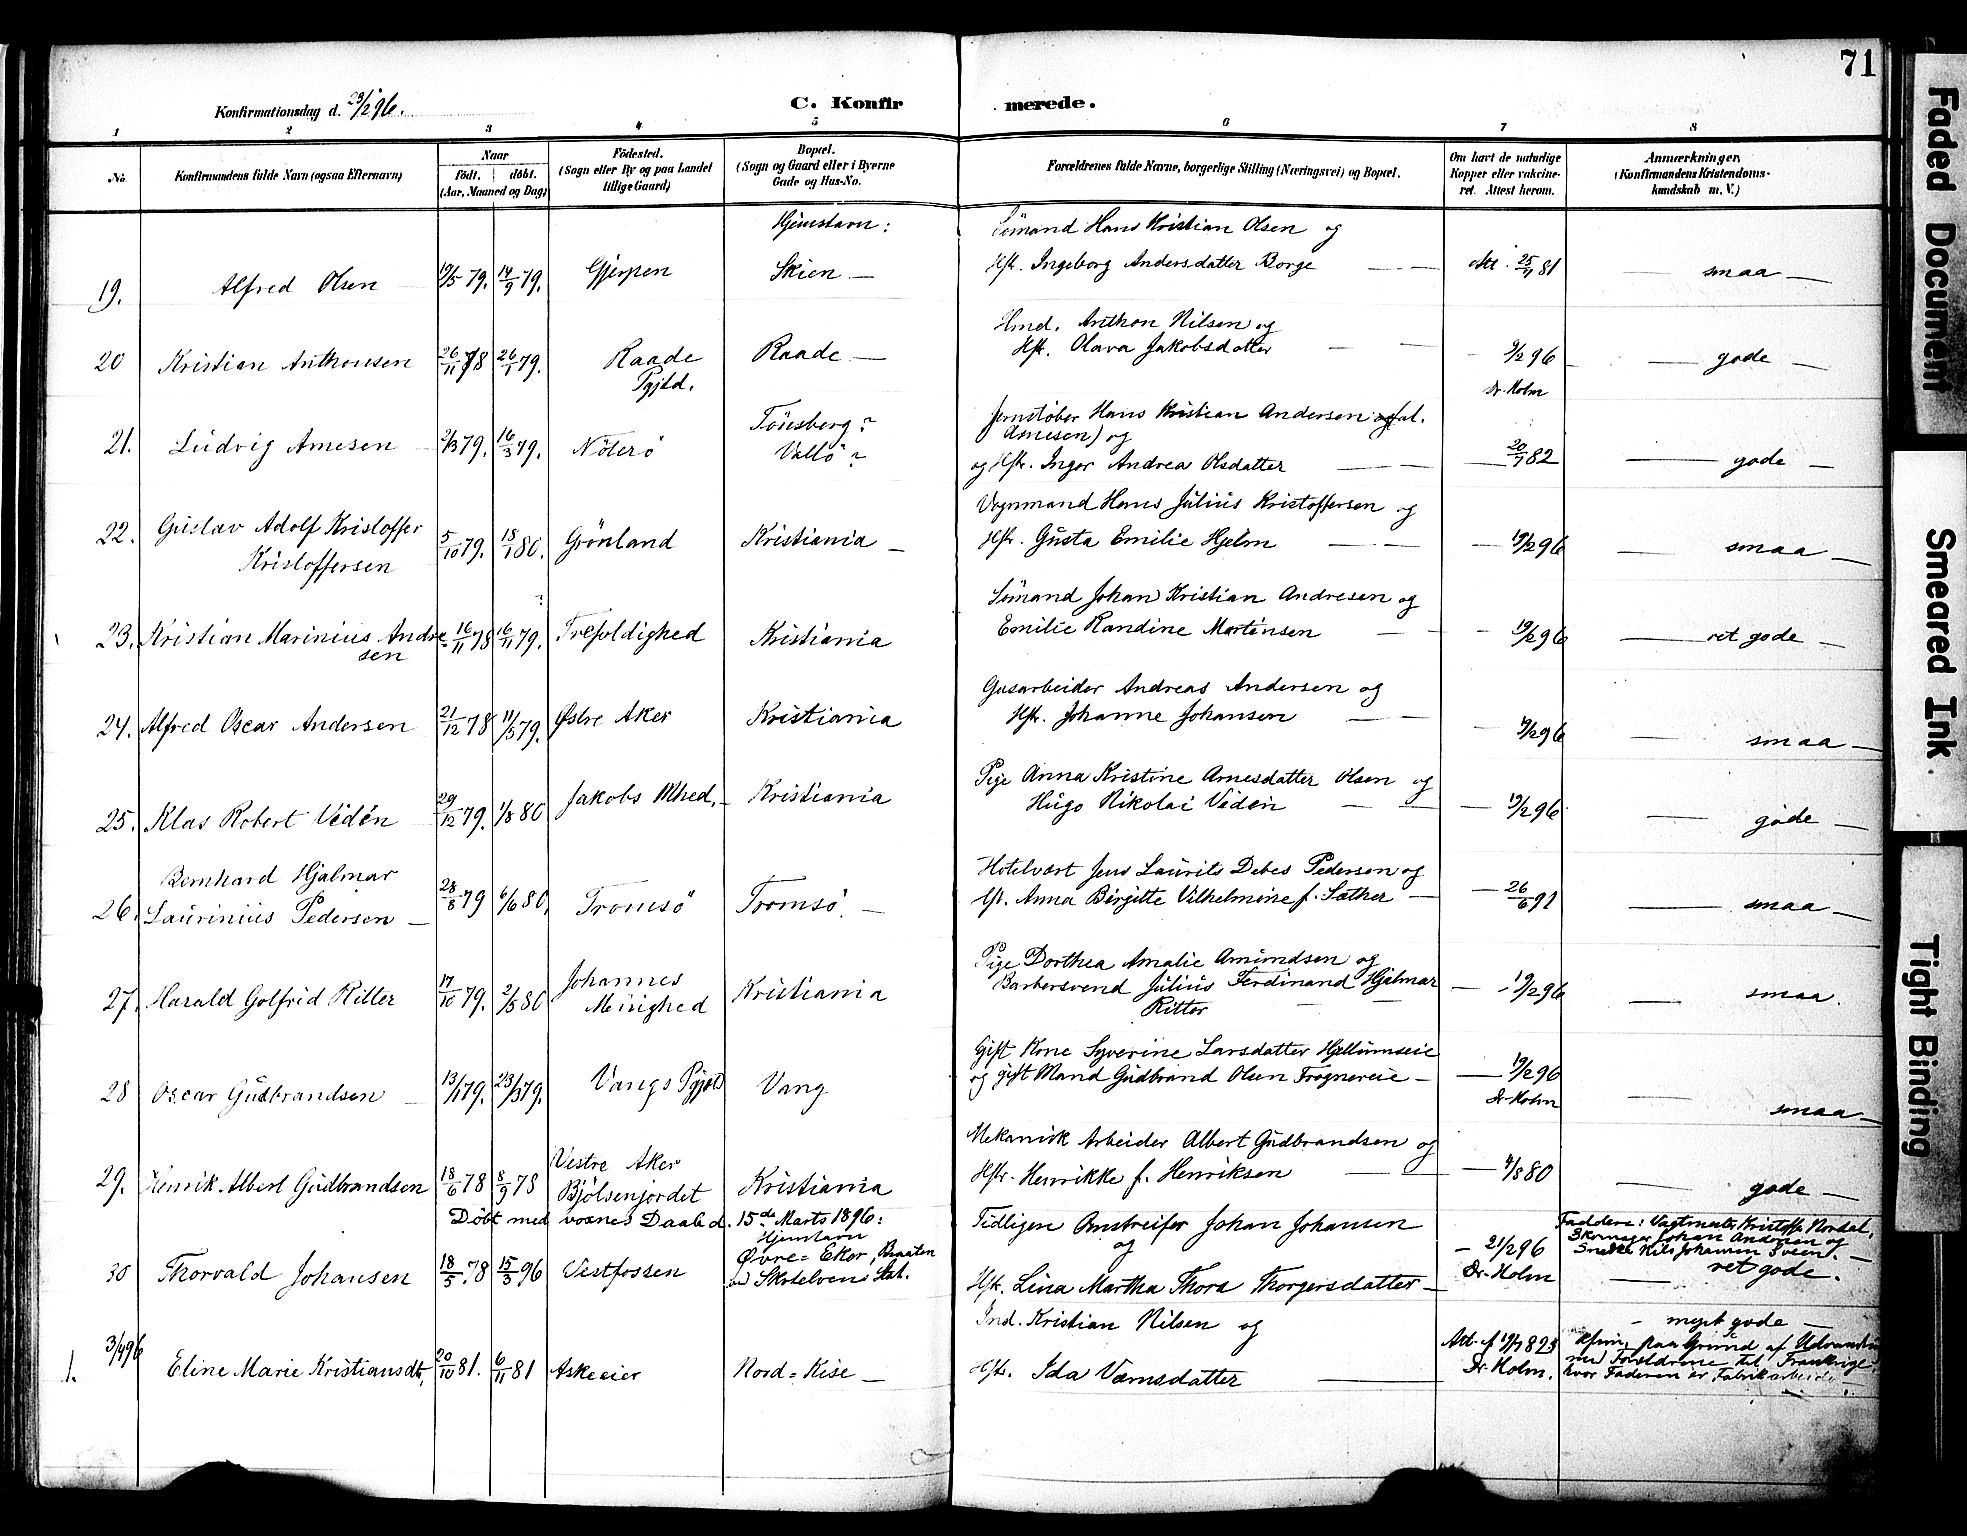 71
Konfirmationsdag d. 23/2 96.
C. Konfirmerede.
1 2 3 4 5 6 7 8
No.
Konfirmandens fulde Navn (ogsaa Efternavn)
Naar
født. døbt.
(Aar, Maaned og Dag)
Fødested.
(Sogn eller By og paa Landet
tillige Gaard)
Bopæl.
(Sogn og Gaard eller i Byerne
Gade og Hus-No.
Forældrenes fulde Navne, borgerlige Stilling (Næringsvei) og Bopæl.
Om havt de naturlige
Kopper eller vakcine-
ret. Attest herom.
Anmærkninger.
(Konfirmandens Kristendoms-
kundskab m. V.)
Hjemstavn:
Sömand Hans Kristian Olsen og
19. Alfred Olsen 19/5 79. 14/9 79. Gjerpen Skien — Hstr. Ingeborg Andersdatter Borge Att. 25/11 81 smaa —
Hmd. Anthon Nilsen og
20 Kristian Anthonsen 26/11 78 26/1 79. Raade Raade — Hstr. Olava Jakobsdatter 9/2 96 gode
Pgjld. Dr. Holm
Jernstöber Hans Kristian Andersen
Arnesen) og
21. Ludvig Arnesen 2/3 79. 16/3 79. Nöterö Tönsberg?
Vallö? og Hstr. Inger Andrea Olsdatter 20/7 82 gode —
Vognmand Hans Julius Kristoffersen og
22. Gustav Adolf Kristoffer
Kristoffersen 5/10 79. 18/1 80. Grönland Kristiania — Hstr. Gusta Emilie Hjelm 19/2 96 smaa —
Sömand Johan Kristian Andresen og
23. Kristian Marinius Andre
sen 16/11 78 16/11 79. Trefoldighed Kristiania Emilie Randine Martinsen 19/2 96 ret gode —
Gasarbeider Andreas Andersen og
24. Alfred Oscar Andersen 21/12 78 11/5 79. Østre Aker Kristiania Hstr. Johanne Johansen 19/2 96 smaa —
Pige Anna Kristine Arnesdatter Olsen og
25. Klas Robert Vidén 29/12 79. 1/8 80 Jakobs Mhed. Kristiania Hugo Nikolai Vidén 19/2 96 gode —
Hotelvært Jens Laurits Debes Pedersen og
26. Bernhard Hjalmar
Laurinius Pedersen — 28/8 79 6/6 80. Tromsö Tromsö. — Hst. Anna Birgitte Vilhelmine f. Sæther — 26/6 91 smaa —
Pige Dorthea Amalie Amundsen og
27. Harald Golfrid Ritter 17/10 79. 2/5 80 Johannes
Menighed Kristiania Barbersvend Julius Ferdinand Hjalmar
Ritter 19/2 96 smaa.
Gift Kone Syverine Larsdatter Hjellumseie
28 Oscar Gudbrandsen 13/1 79. 23/3 79. Vangs Pgjld Vang og gift Mand Gudbrand Olsen Frognereie — 19/2 96
Dr. Holm smaa —
Mekanisk Arbeider Albert Gudbrandsen og
29. Henrik Albert Gudbrandsen 18/6 78 8/9 78 Vestre Aker
Bjölsenjordet Kristiania Hstr. Henrikke f. Henriksen 4/8 80 gode —
Döbt med voxnes Daab d. 15de Marts 1896:
Hjemstavn
30 Thorvald Johansen 18/5 78 15/3 96 Vestfossen Övre-Eker, Braaten
v. Skotselvens Stat. Tidligere Omstreifer Johan Johansen
og
Hstr. Lina Martha Thora Thorgersdatter — 21/2 96
Dr. Holm Faddere: Vagtmester Kristoffer Nordal,
Skomager Johan Andersen og
Snedker Nils Johansen Sveen.
ret gode.
3/4 96
1. Eline Marie Kristiansdtr. 20/10 81. 6/11 81 Askeeier Nord-Kise — Ind. Kristian Nilsen og
Hstr. Ida Værnsdatter Att. af
Dr. Holm. — meget gode —
paa Grund af
med Forældrene til Frankrige,
hvor Faderen er Fabrikarbeider
Faded Document
Smeared Ink
Tight Binding